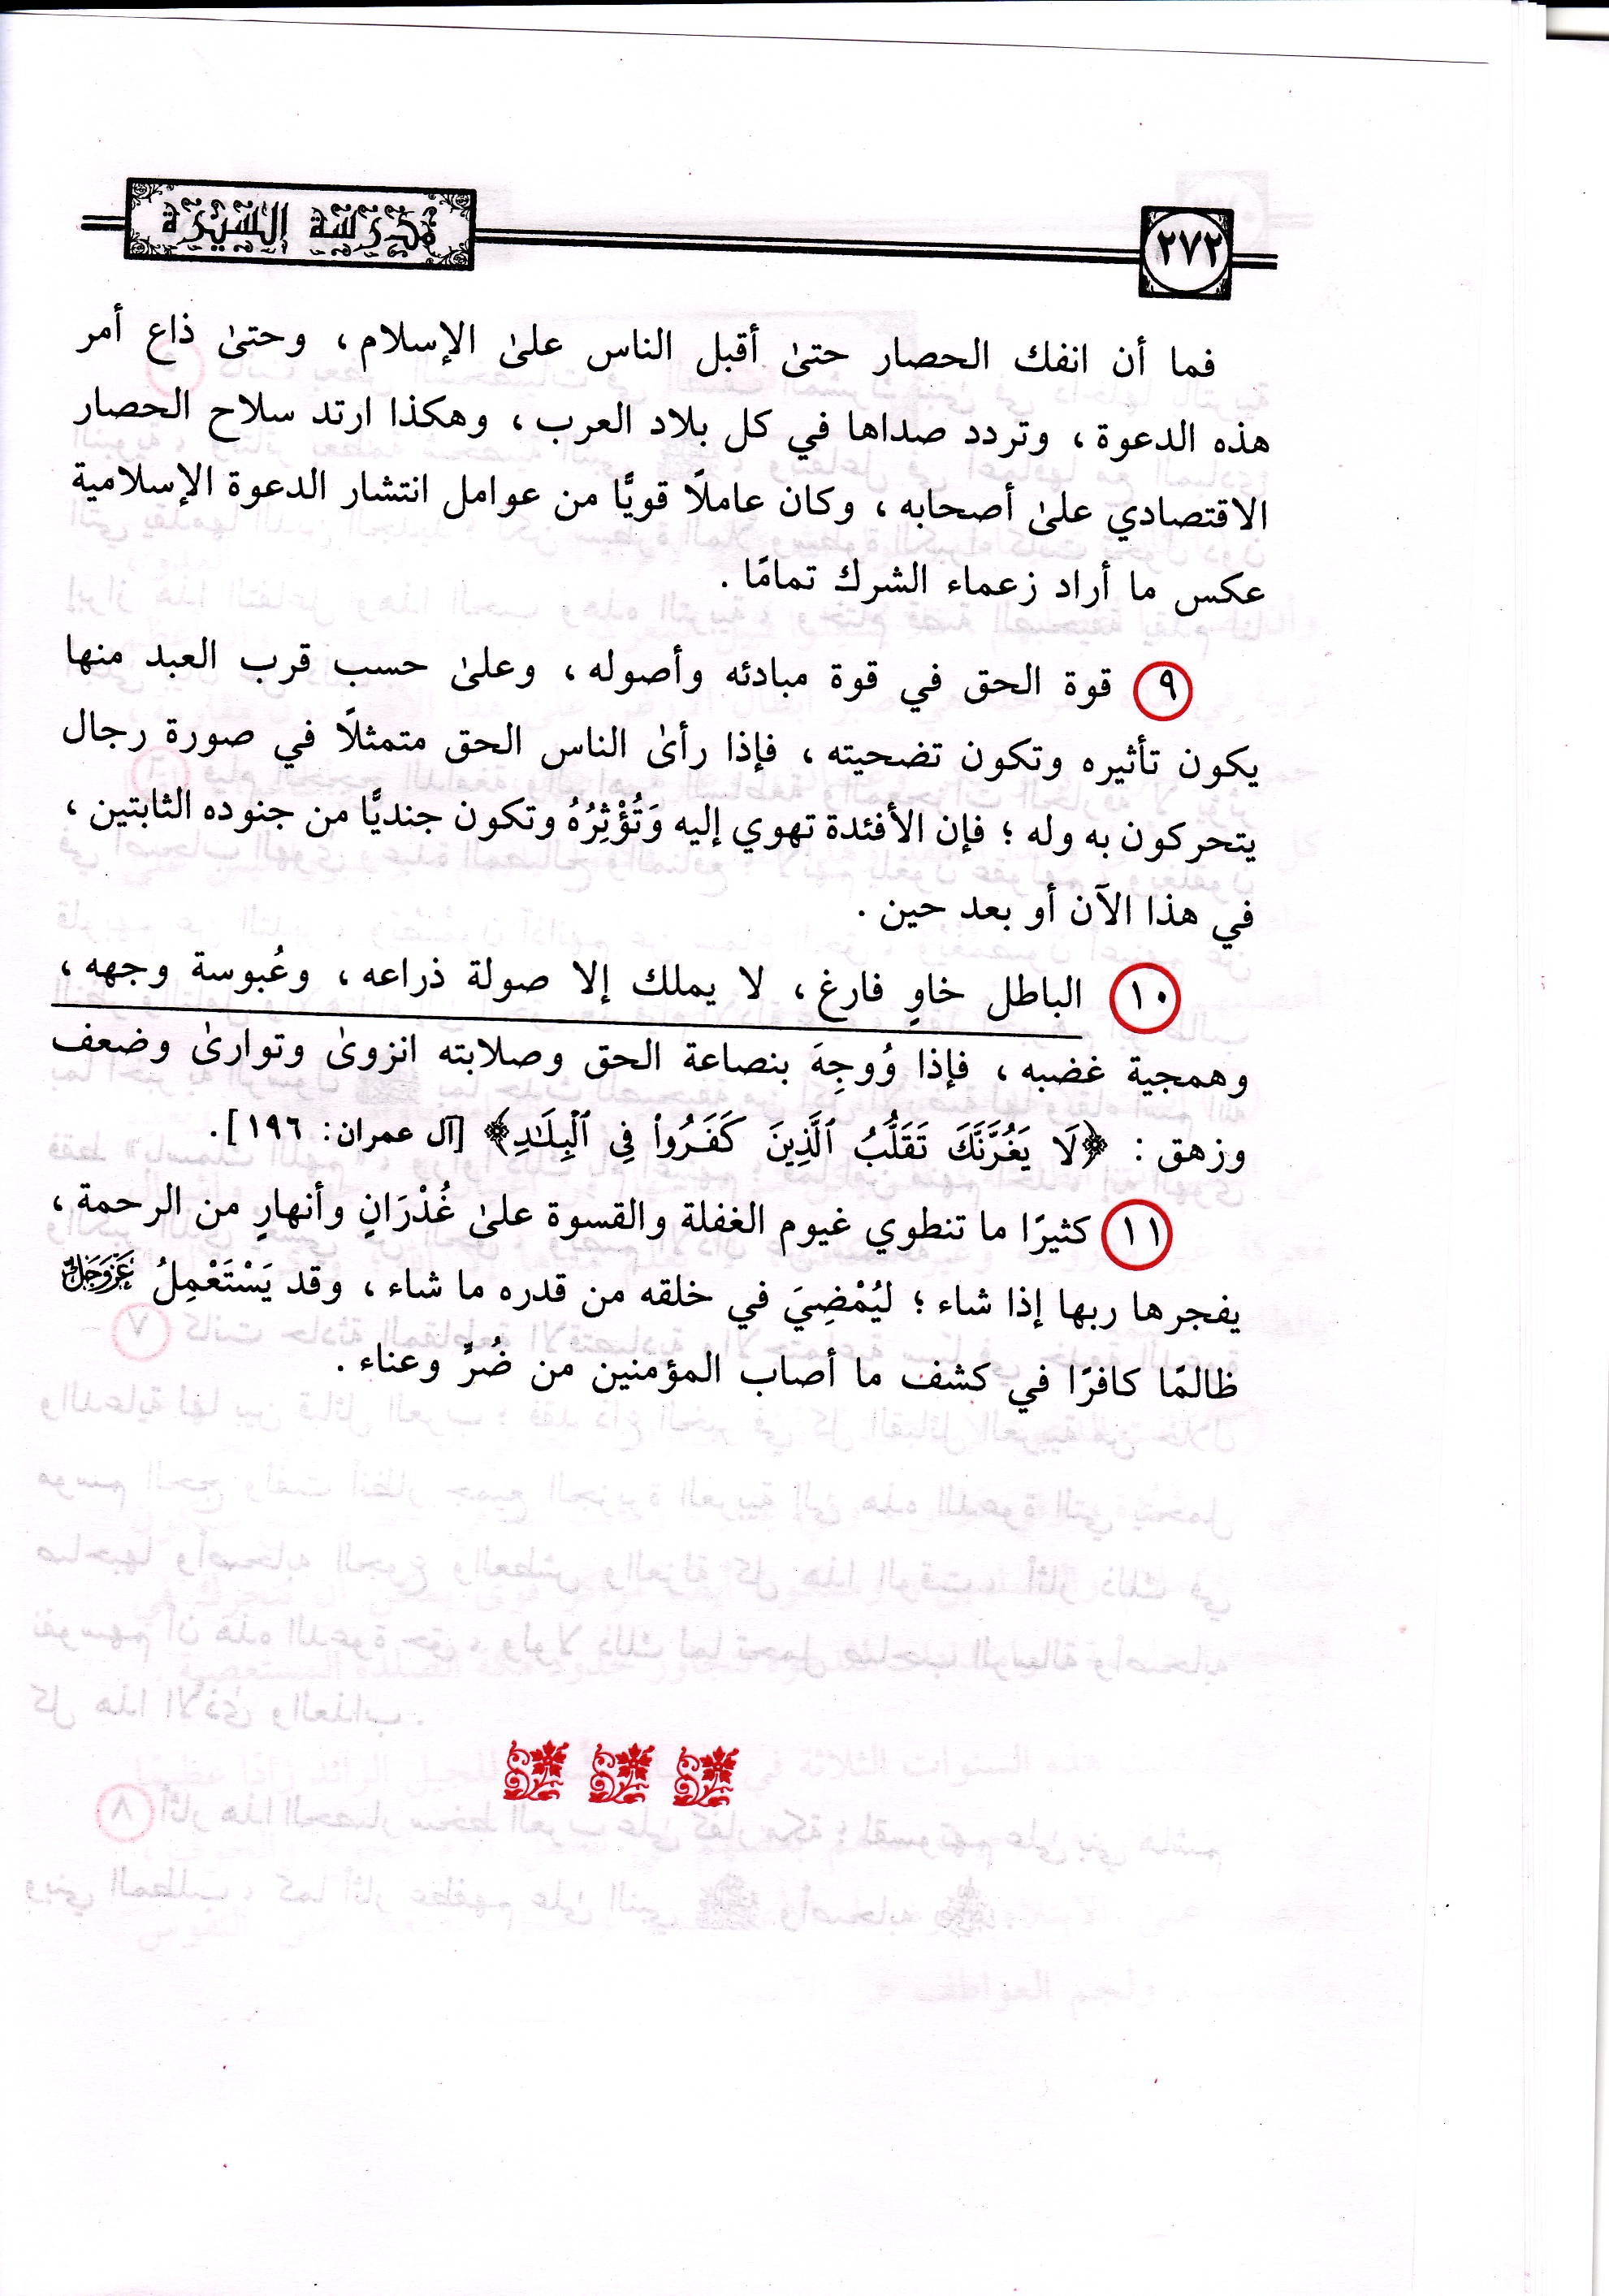 ٢٧٢ مدرسة السيرة
فما أن انفك الحصار حتىٰ أقبل الناس علىٰ الإسلام ، وحتىٰ ذاع أمر
هذه الدعوة ، وتردد صداها في كل بلاد العرب ، وهكذا ارتد سلاح الحصار
الاقتصادي علىٰ أصحابه ، وكان عاملًا قويًّا من عوامل انتشار الدعوة الإسلامية
عكس ما أراد زعماء الشرك تمامًا .
٩ قوة الحق في قوة مبادئه وأصوله ، وعلىٰ حسب قرب العبد منها
يكون تأثيره وتكون تضحيته ، فإذا رأىٰ الناس الحق متمثلًا في صورة رجال
يتحركون به وله ؛ فإن الأفئدة تهوي إليه وَتُؤْثِرُهُ وتكون جنديًّا من جنوده الثابتين ،
في هذا الآن أو بعد حين .
١٠ الباطل خاوٍ فارغ ، لا يملك إلا صولة ذراعه ، وعُبوسة وجهه ،
وهمجية غضبه ، فإذا وُوجِهَ بنصاعة الحق وصلابته انزوىٰ وتوارىٰ وضعف
وزهق : ﴿لَا يَغُرَّنَّكَ تَقَلُّبُ ٱلَّذِينَ كَفَرُوا۟ فِى ٱلْبِلَـٰدِ﴾ [آل عمران: ١٩٦].
١١ كثيرًا ما تنطوي غيوم الغفلة والقسوة علىٰ غُدْرَانٍ وأنهارٍ من الرحمة ،
يفجرها ربها إذا شاء ؛ ليُمْضِيَ في خلقه من قدره ما شاء ، وقد يَسْتَعْمِلُ عَزَّوَجَلَّ
ظالمًا كافرًا في كشف ما أصاب المؤمنين من ضُرٍّ وعناء .